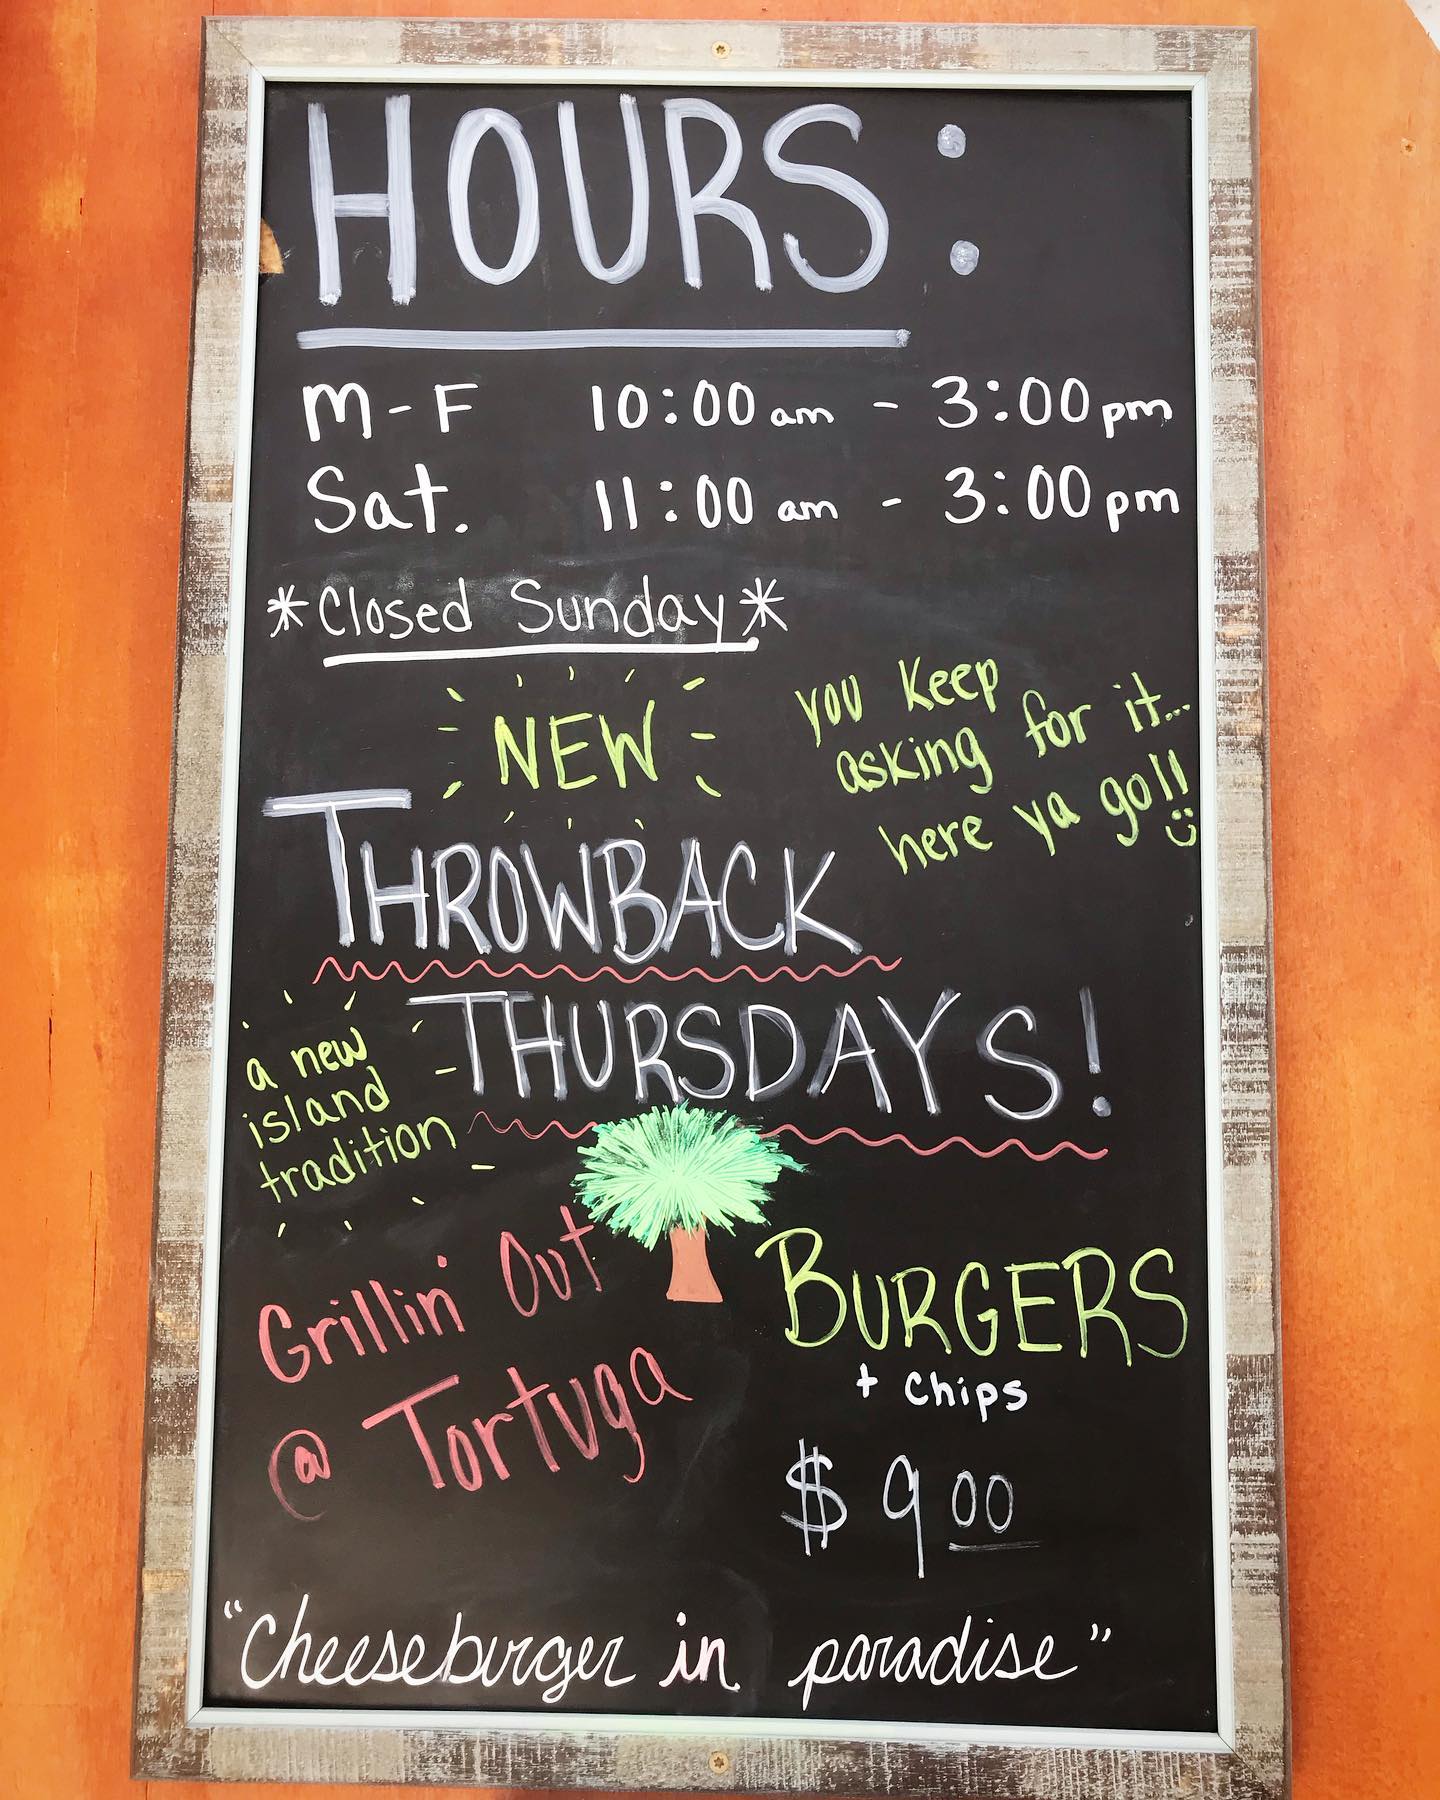 HOURS:
M-F 10:00 am - 3:00 pm
Sat. 11:00 am - 3:00 pm
*Closed Sunday*
NEW
you keep
asking for it...
here ya go!!
THROWBACK
THURSDAYS!
a new
island
tradition
Grillin' Out
@ Tortuga
BURGERS
+ chips
$9 00
"Cheeseburger in paradise"